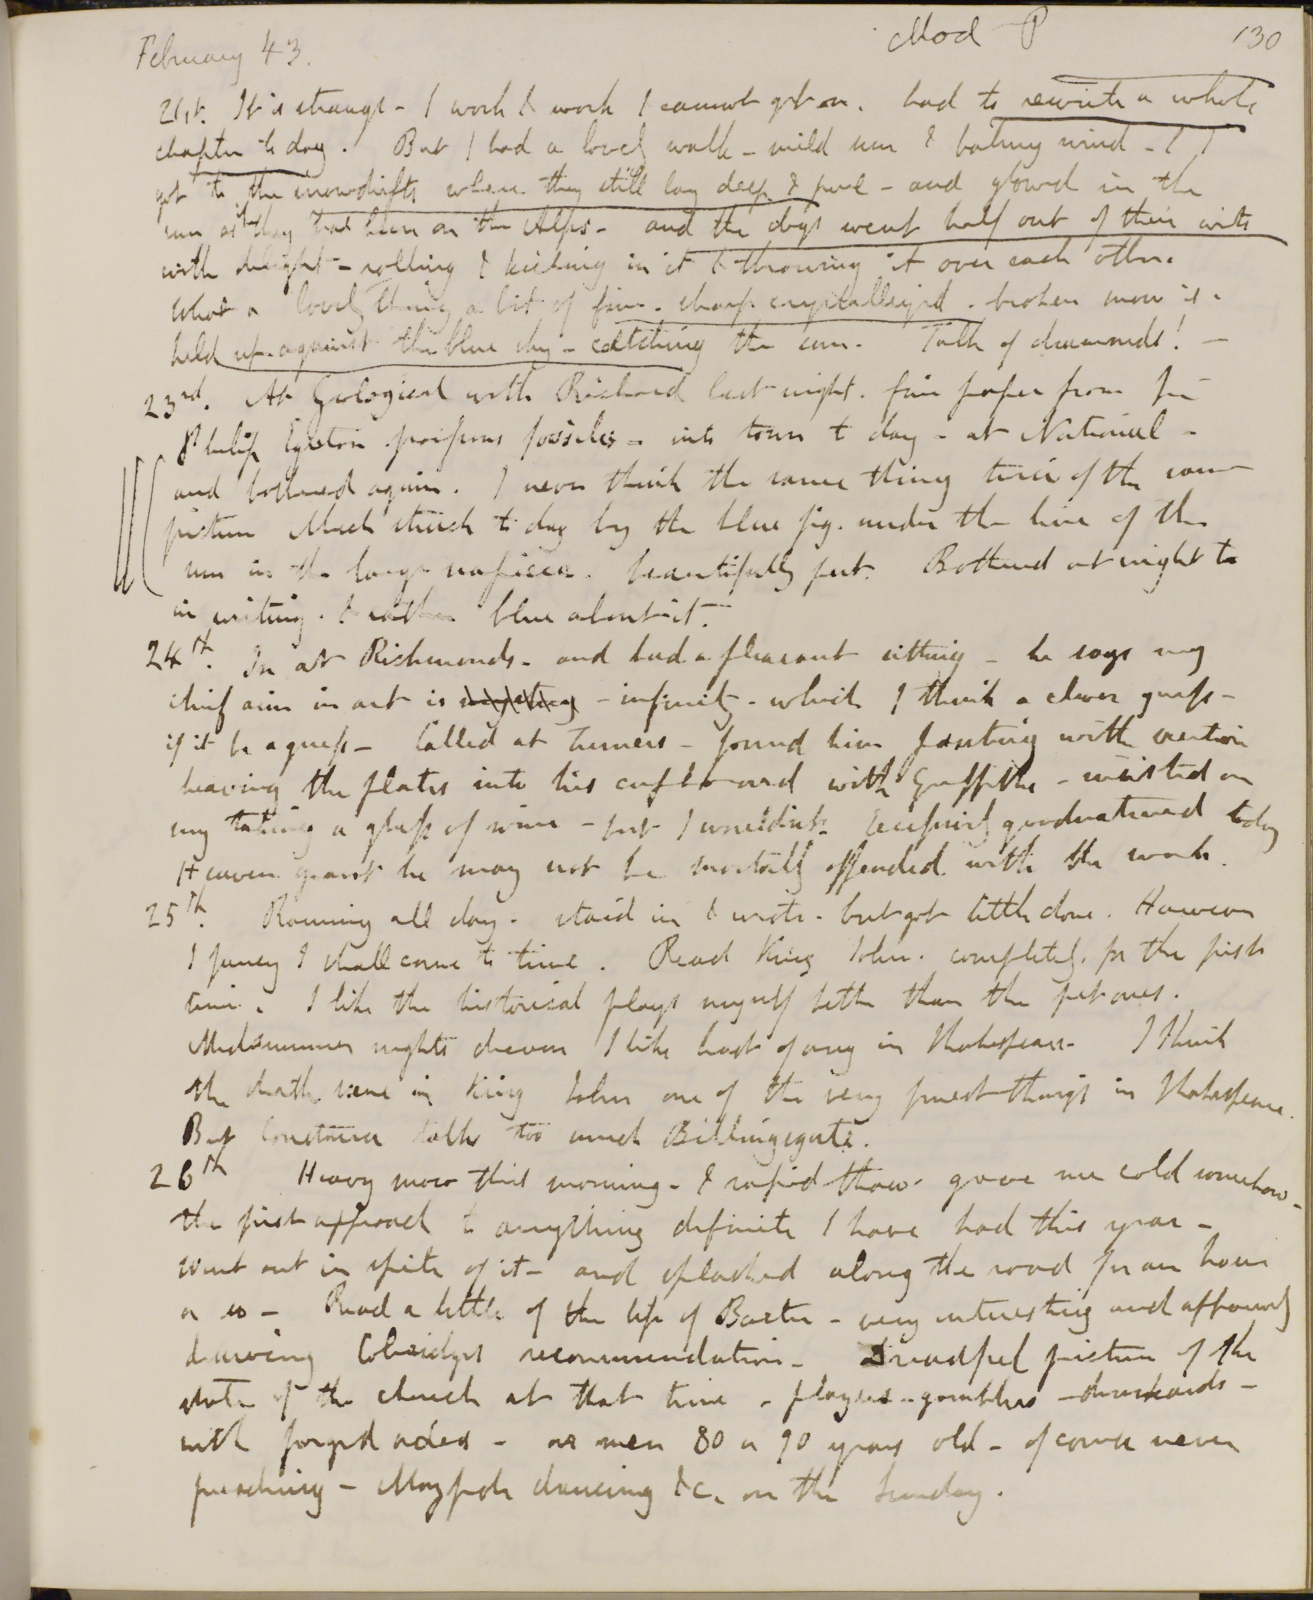 February 43.
Mod P
130
21st. It is strange - I work & work I cannot get on. had to rewrite a whole
chapter to day. But I had a lovely walk - mild sun & balmy wind - & I
got to the snowdrifts where they still lay deep & pure - and glowed in the
sun as they had been on the Alps - and the dogs went half out of their wits
with delight - rolling & kicking in it & throwing it over each other.
What a lovely thing a bit of fine. sharp crystallized. broken snow is.
held up against the blue sky - catching the sun. Talk of diamonds! -
23rd. At Geological with Richard last night. fine paper from Sir
Philip Egerton fossiles - into town to day - at National -
and bothered again. I never think the same thing twice of the same
picture Much struck to day by the blue fig. under the line of the
sun in the large. beautifully put. Bothered at night to
in writing. & rather blue about it.
24th. In at Richmonds - and had a pleasant sitting - he says my
chief aim in art is - infinity - which I think a clever guess -
if it be a guess - Called at Turners - found him panting with exertion
heaving the plates into his cupboard with Griffiths - insisted on
my taking a glass of wine - but I wouldnt. Excessively goodnatured today
Heaven grant he may not be mortally offended with the work.
25th. Raining all day. staid in & wrote - but got little done. However
I fancy I shall come to time. Read King John. completely. for the first
time. I like the historical plays myself better than the pet ones.
Midsummer nights dream I like least of any in Shakespeare. I think
the death scene in King John one of the very finest things in Shakespeare.
But Constance talks too much Billingsgate.
26th Heavy snow this morning - & rapid thaw. gave me cold somehow -
the first approach to anything definite I have had this year -
went out in spite of it - and splashed along the road for an hour
or so - Read a little of the life of Baxter - very interesting and apparently
deserving Coleridges recommendation - Dreadful picture of the
state of the church at that time - players - gamblers - drunkards -
with forged orders - or men 80 or 90 years old - of course never
preaching - Maypole dancing &c. on the Sunday.